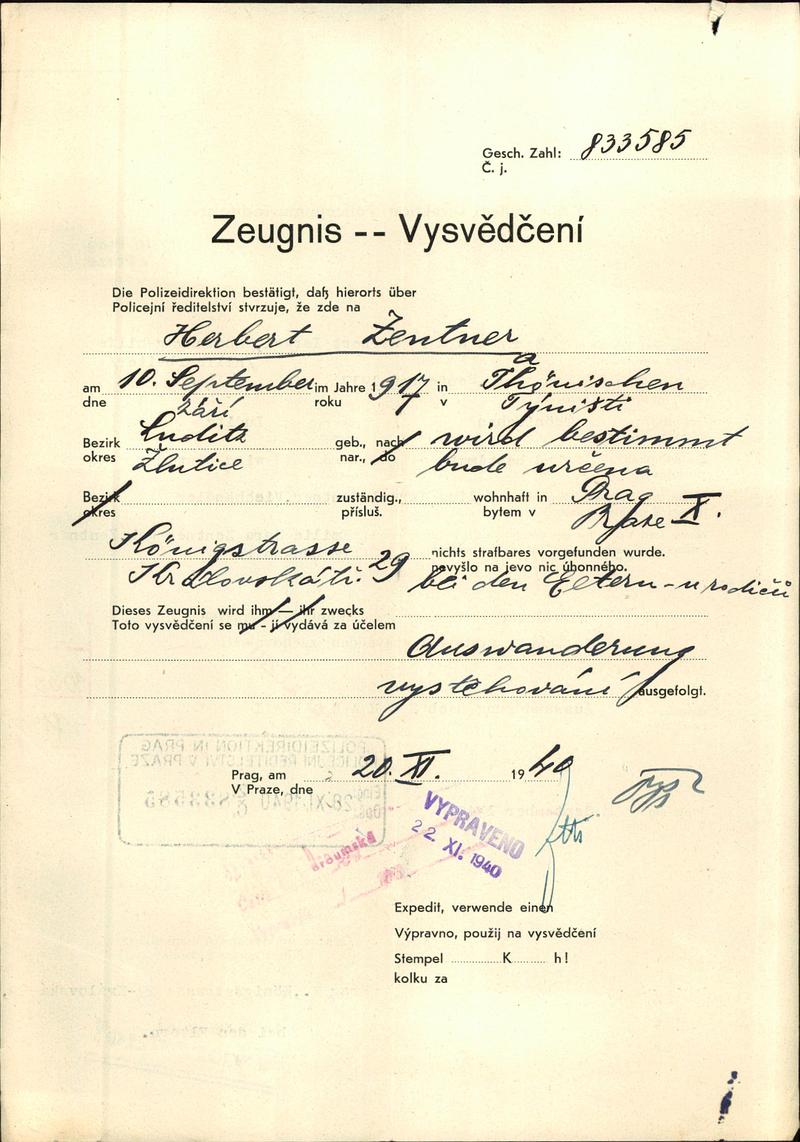 Gesch. Zahl: 833585
Č. j.
Zeugnis -- Vysvědčení
Die Polizeidirektion bestätigt, daß hierorts über
Policejní ředitelství stvrzuje, že zde na
Herbert Zentner
a
am 10. September im Jahre 1917 in Thönischen
dne září roku 7 v Týništi
Bezirk Luditz geb., nach wird bestimmt
okres Žlutice nar., do bude určena
Bezirk zuständig., wohnhaft in Prag
okres přísluš. bytem v Praze X.
Königstrasse 29 nichts strafbares vorgefunden wurde.
nevyšlo na jevo nic úhonného.
Královská tř. bei den Eltern - u rodičů
Dieses Zeugnis wird ihm — ihr zwecks
Toto vysvědčení se mu - jí vydává za účelem
Auswanderung
vystěhování ausgefolgt.
POLIZEIDIREKTION IN PRAG
POLICEJNÍ ŘEDITELSTVÍ V PRAZE
20. XI. 1940 833585
Prag, am 20. XI. 1940
V Praze, dne
VYPRAVENO
22. XI. 1940
Expedit, verwende einen
Výpravno, použij na vysvědčení
Stempel K h!
kolku za